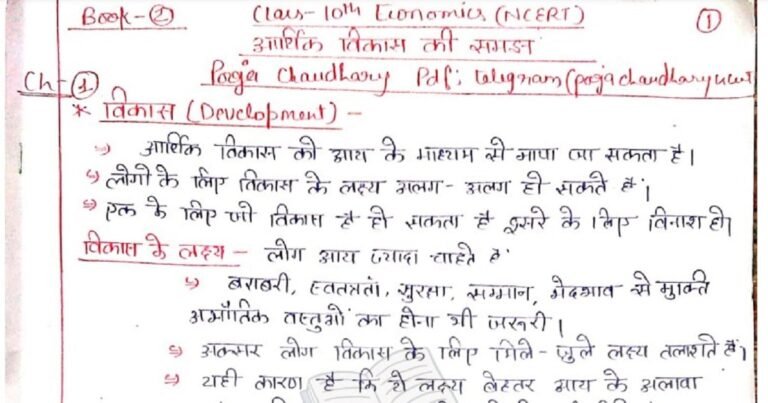 Book-② Class-10th Economics (NCERT) ①
आर्थिक विकास की समझ
Pooja Chaudhary Pdf: telegram(poojachaudharyucert
Ch-①
* विकास (Development) -
→ आर्थिक विकास को आय के माध्यम से मापा जा सकता है।
→ लोगो के लिए विकास के लक्ष्य अलग-अलग हो सकते हैं।
→ एक के लिए जो विकास है हो सकता है दूसरे के लिए विनाश हो।
विकास के लक्ष्य - लोग आय ज्यादा चाहते हैं
→ बराबरी, स्वतंत्रता, सुरक्षा, सम्मान, भेदभाव से मुक्ति
अभौतिक वस्तुओं का होना भी जरूरी।
→ अक्सर लोग विकास के लिए मिले-जुले लक्ष्य तलाशते हैं।
→ यही कारण है कि ये लक्ष्य बेहतर आय के अलावा